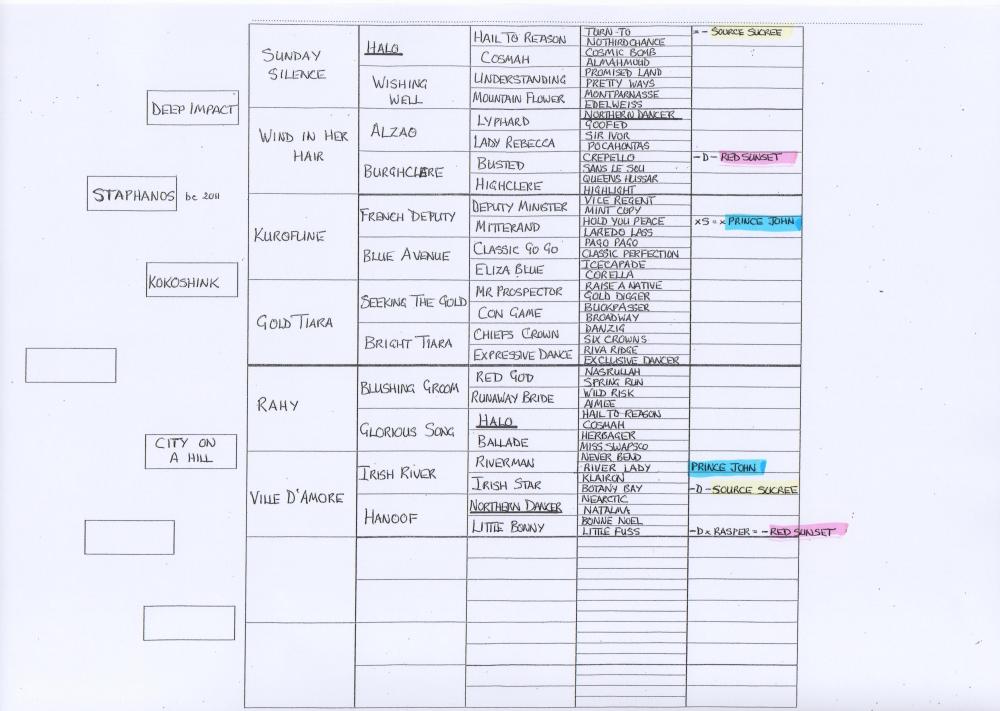 DEEP IMPACT
STAPHANOS bc 2011
KOKOSHINK
CITY ON
A HILL
SUNDAY
SILENCE
WIND IN HER
HAIR
KUROFUNE
GOLD TIARA
RAHY
VILLE D'AMORE
HALO
WISHING
WELL
ALZAO
BURGHCLERE
FRENCH DEPUTY
BLUE AVENUE
SEEKING THE GOLD
BRIGHT TIARA
BLUSHING GROOM
GLORIOUS SONG
IRISH RIVER
HANOOF
HAIL TO REASON
COSMAH
UNDERSTANDING
MOUNTAIN FLOWER
LYPHARD
LADY REBECCA
BUSTED
HIGHCLERE
DEPUTY MINISTER
MITTERAND
CLASSIC GO GO
ELIZA BLUE
MR PROSPECTOR
CON GAME
CHIEFS CROWN
EXPRESSIVE DANCE
RED GOD
RUNAWAY BRIDE
HALO
BALLADE
RIVERMAN
IRISH STAR
NORTHERN DANCER
LITTLE BONNY
TURN-TO
NOTHIRDCHANCE
COSMIC BOMB
ALMAHMOUD
PROMISED LAND
PRETTY WAYS
MONTPARNASSE
EDELWEISS
NORTHERN DANCER
GOOFED
SIR IVOR
POCAHONTAS
CREPELLO
SANS LE SOU
QUEENS HUSSAR
HIGHLIGHT
VICE REGENT
MINT COPY
HOLD YOU PEACE
LAREDO LASS
PAGO PAGO
CLASSIC PERFECTION
ICECAPADE
CORELLA
RAISE A NATIVE
GOLD DIGGER
BUCKPASSER
BROADWAY
DANZIG
SIX CROWNS
RIVA RIDGE
EXCLUSIVE DANCER
NASRULLAH
SPRING RUN
WILD RISK
AIMEE
HAIL TO REASON
COSMAH
HERBAGER
MISS SWAPSCO
NEVER BEND
RIVER LADY
KLAIRON
BOTANY BAY
NEARCTIC
NATALMA
BONNE NOEL
LITTLE FUSS
= - SOURCE SUCREE
-D- RED SUNSET
xS = x PRINCE JOHN
PRINCE JOHN
-D- SOURCE SUCREE
-D x RASPER = - RED SUNSET